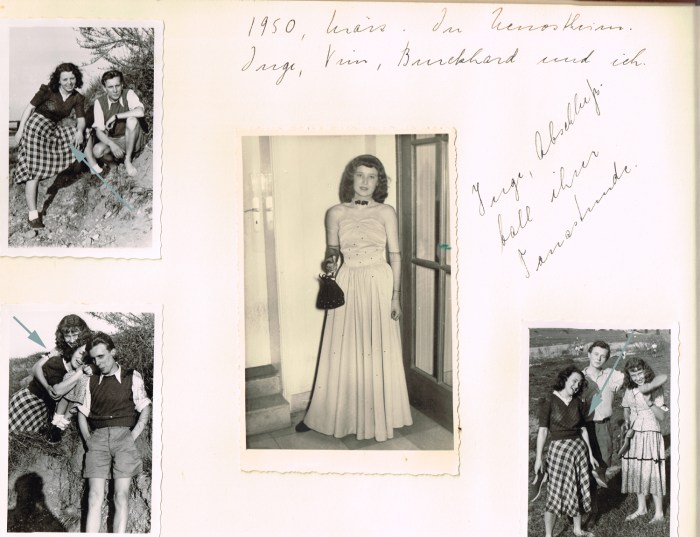 1950, März. In
Inge, Wim, Burckhard und ich.
Inge, Abschluß-
ball ihrer
Tanzstunde.